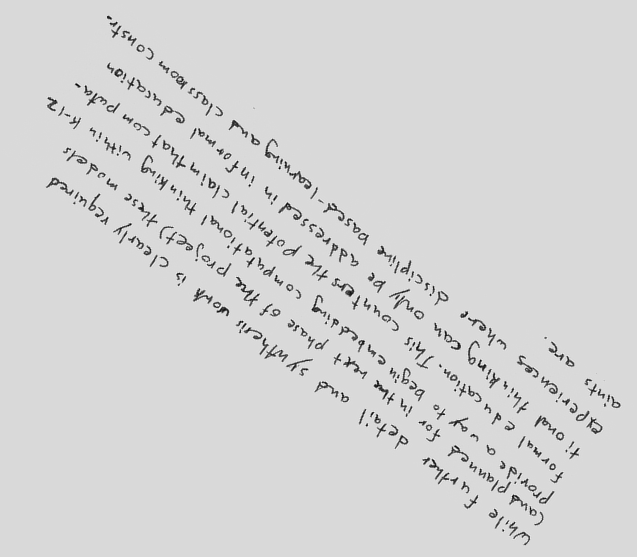 While further detail and synthesis work is clearly required
(and planned for in the next phase of the project) these models
provide a way to begin embedding computational thinking within K-12
formal education. This counters the potential claim that computa-
tional thinking can only be addressed in informal education
experiences where discipline based-learning and classroom constr.
aints are.